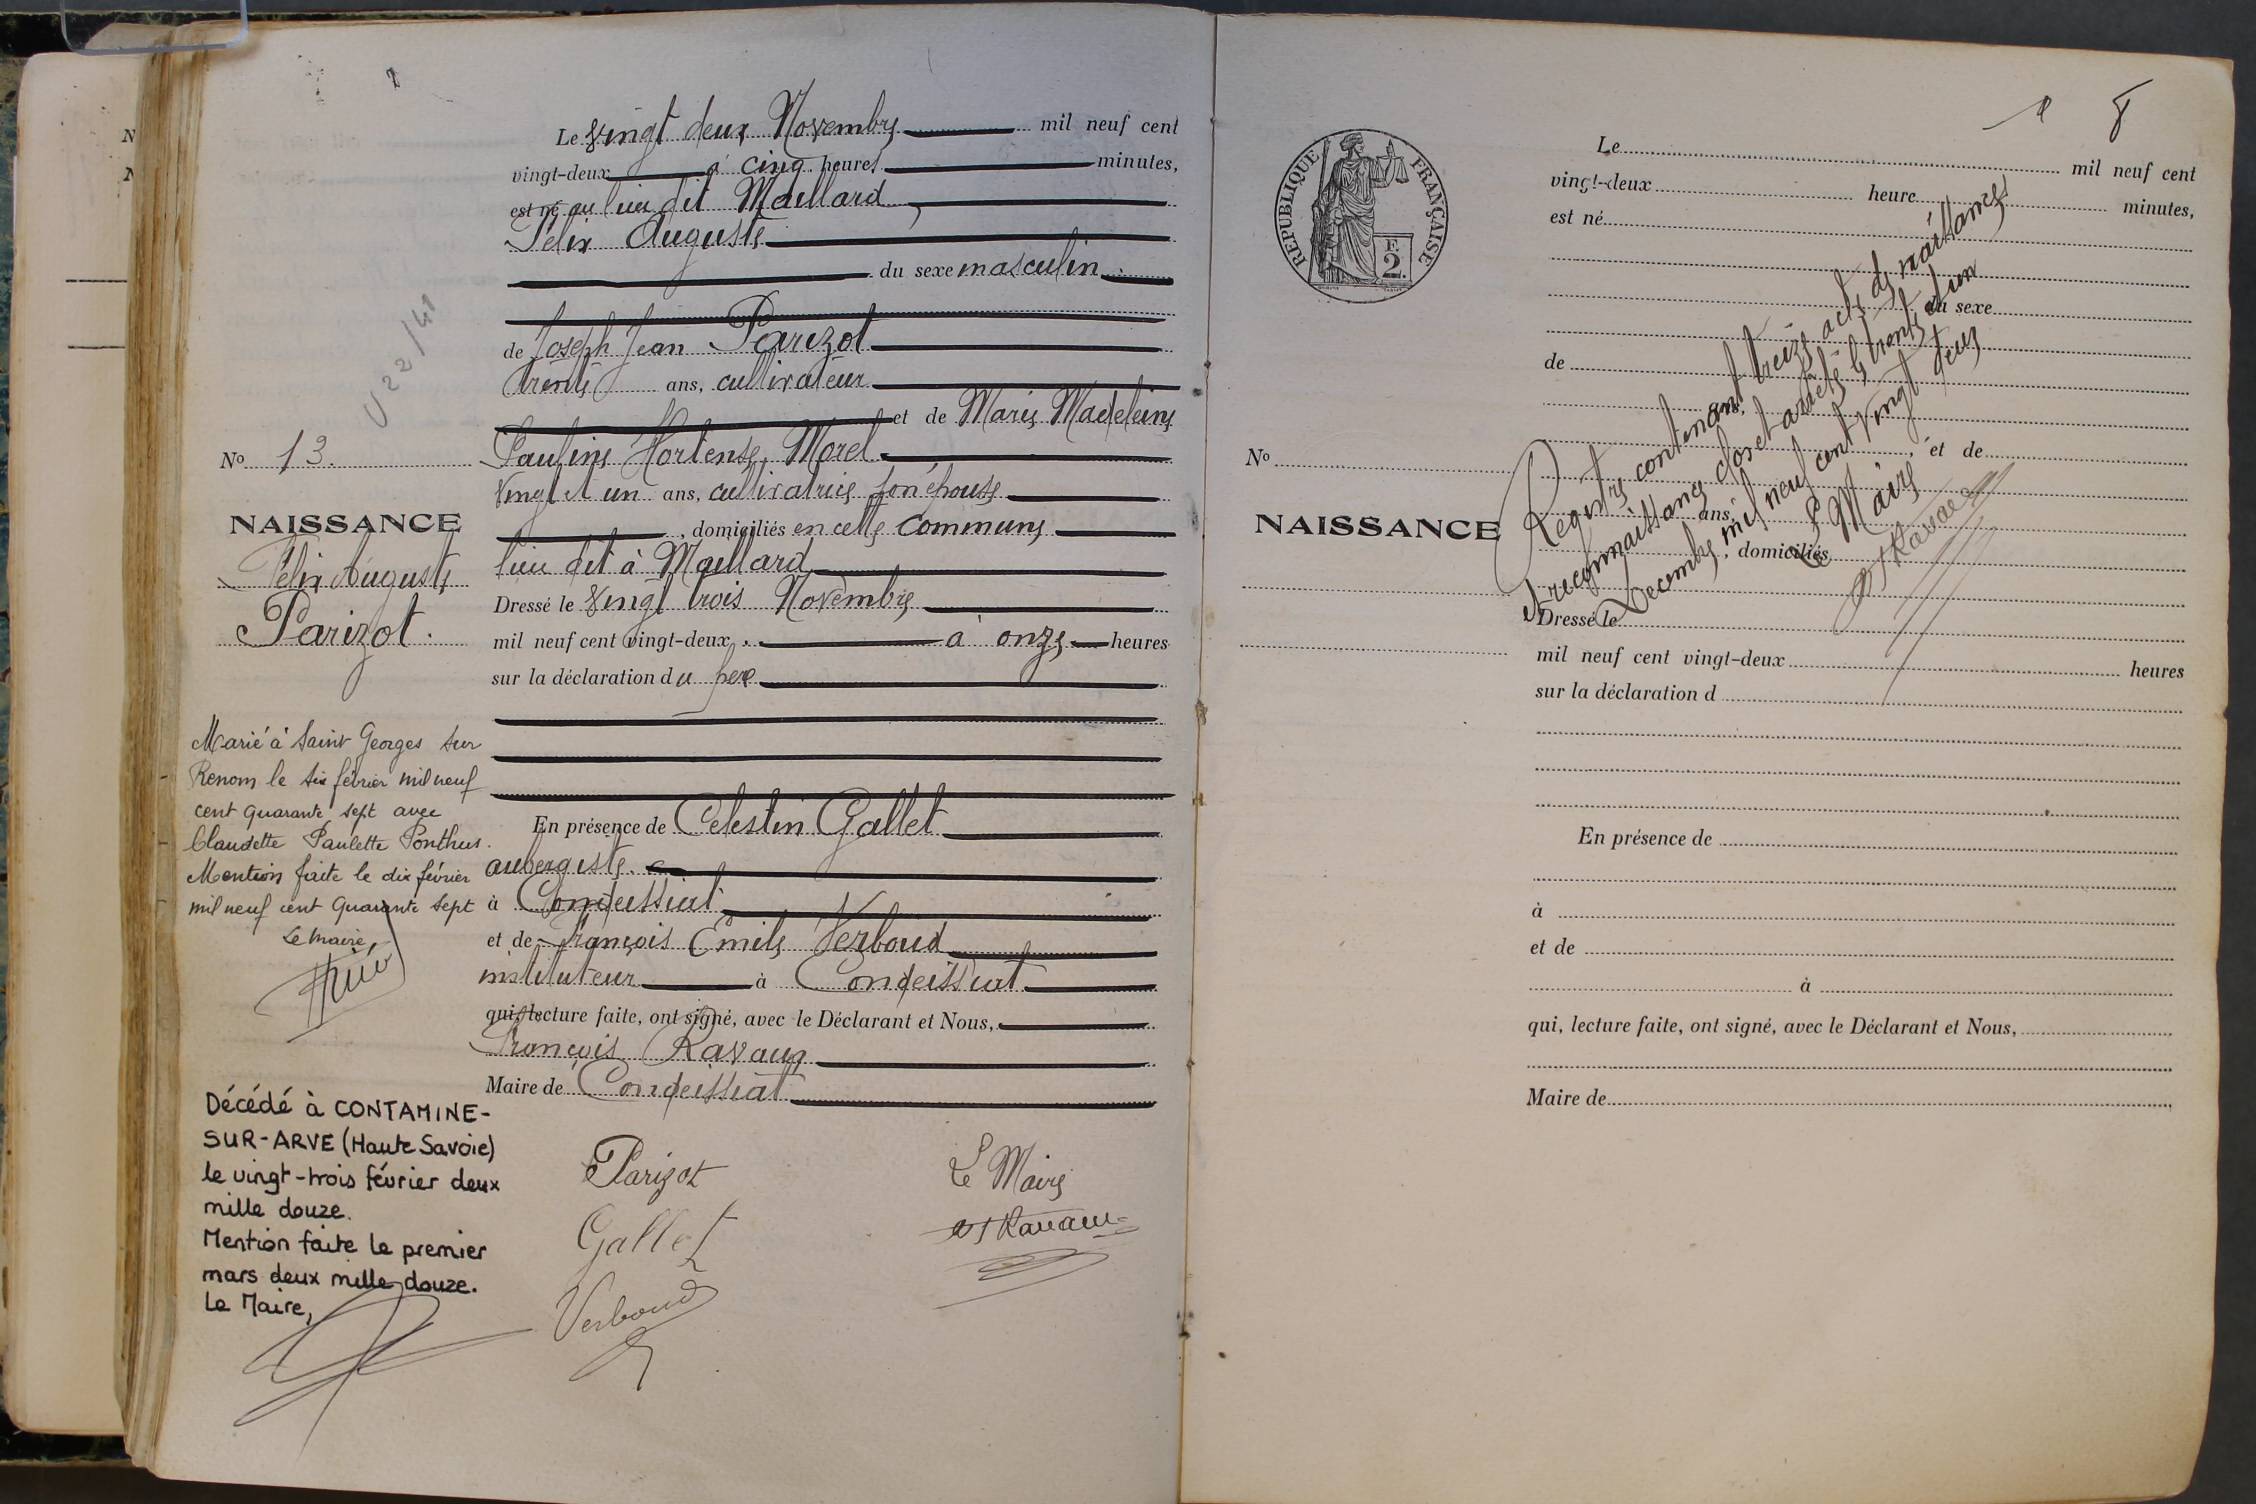 Le vingt deux Novembre mil neuf cent
vingt-deux à cinq heures minutes,
est né au lieu dit Maillard,
Félix Auguste
du sexe masculin
de Joseph Jean Parizot
trente ans, cultivateur
et de Marie Madeleine
Pauline Hortense, Morel
vingt et un ans, cultivatrice son épouse
, domiciliés en cette commune
lieu dit à Maillard
Dressé le vingt trois Novembre
mil neuf cent vingt-deux, à onze heures
sur la déclaration du père
En présence de Célestin Gallet
aubergiste
à Condeissiat
et de François Emile Verboud
instituteur à Condeissiat
qui, lecture faite, ont signé, avec le Déclarant et Nous,
François Ravaux
Maire de Condeissiat
Parizot
Gallet
Verboud
Le Maire
Ravaux
U 22/41
No 13.
NAISSANCE
Félix Auguste
Parizot.
Marié à Saint Georges sur
Renom le six février mil neuf
cent quarante sept avec
Claudette Paulette Ponthus.
Mention faite le dix février
mil neuf cent quarante sept
Le maire,
Décédé à CONTAMINE-
SUR-ARVE (Haute Savoie)
le vingt-trois février deux
mille douze.
Mention faite le premier
mars deux mille douze.
Le Maire,
8
REPUBLIQUE FRANÇAISE
F.
2.
Le mil neuf cent
vingt-deux heure minutes,
est né
du sexe
de
ans,
et de
ans,
domiciliés
Dressé le
mil neuf cent vingt-deux heures
sur la déclaration d
En présence de
à
et de
à
qui, lecture faite, ont signé, avec le Déclarant et Nous,
Maire de
No
NAISSANCE
Registre contenant treize actes de naissances
et reconnaissance clos et arrêté le trente et un
Decembre mil neuf cent vingt deux
Le Maire
Ravaux